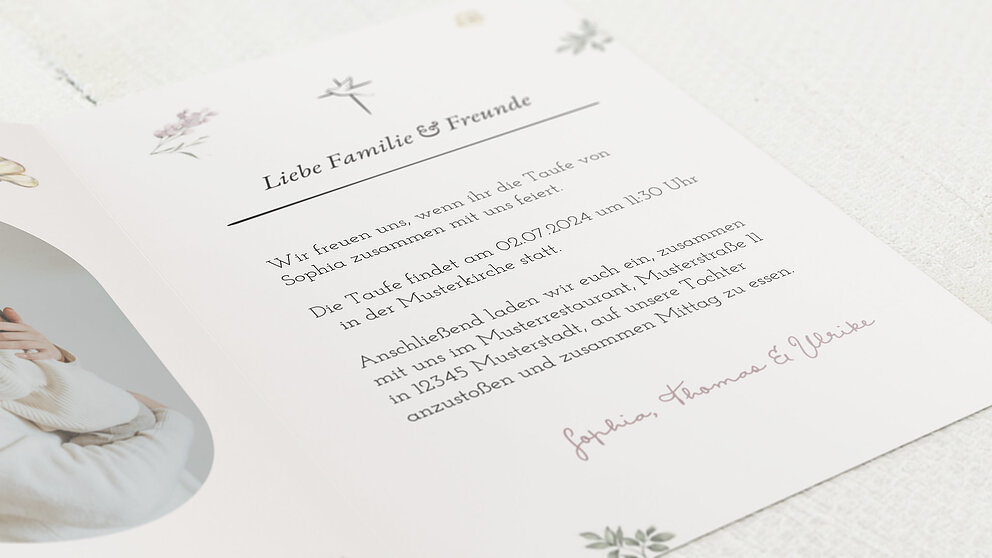 Liebe Familie & Freunde
Wir freuen uns, wenn ihr die Taufe von
Sophia zusammen mit uns feiert.
Die Taufe findet am 02.07.2024 um 11:30 Uhr
in der Musterkirche statt.
Anschließend laden wir euch ein, zusammen
mit uns im Musterrestaurant, Musterstraße 11
in 12345 Musterstadt, auf unsere Tochter
anzustoßen und zusammen Mittag zu essen.
Sophia, Thomas & Ulrike